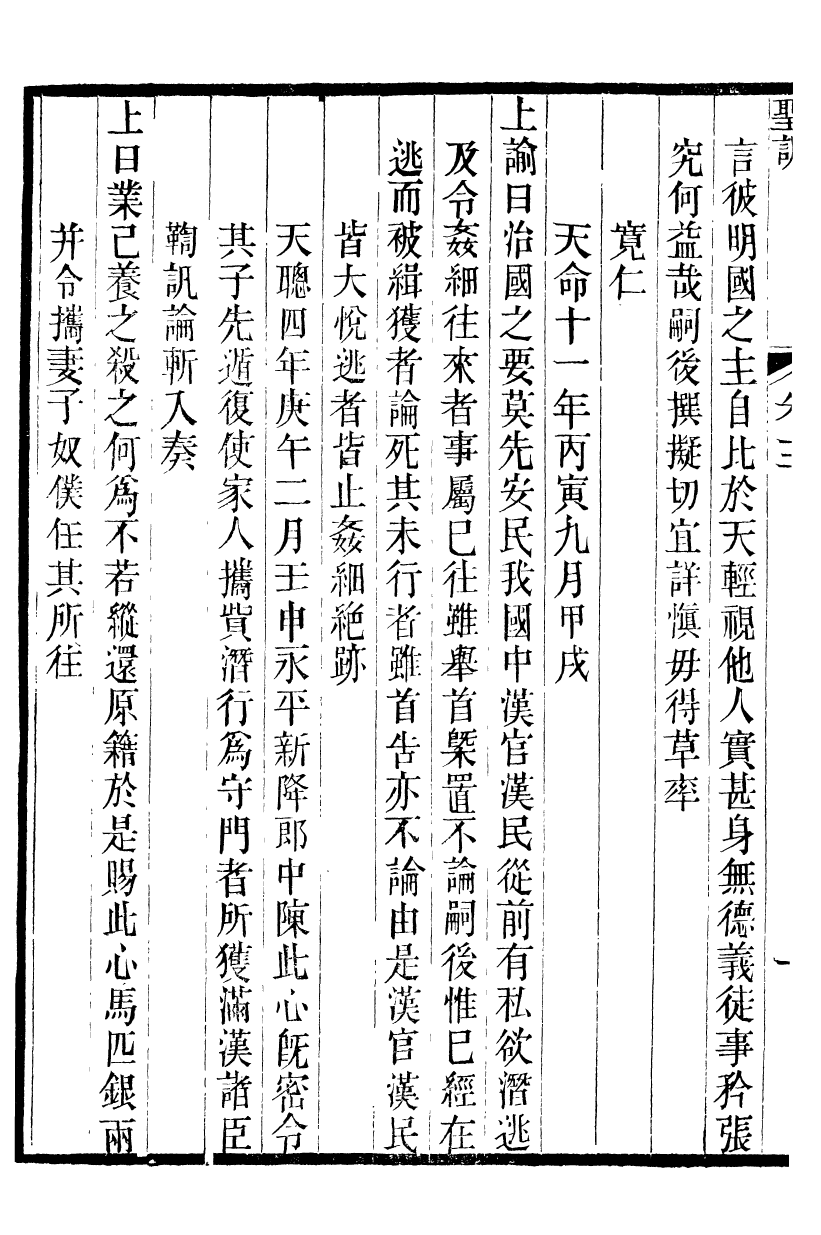 聖訓
卷三
一
言彼明國之主自比於天輕視他人實甚身無德義徒事矜張
究何益哉嗣後撰擬切宜詳愼毋得草率
寬仁
天命十一年丙寅九月甲戌
上諭曰治國之要莫先安民我國中漢官漢民從前有私欲潛逃
及令姦細往來者事屬已往雖舉首槩置不論嗣後惟已經在
逃而被緝獲者論死其未行者雖首告亦不論由是漢官漢民
皆大悅逃者皆止姦細絶跡
天聰四年庚午二月壬申永平新降郎中陳此心旣密令
其子先遁復使家人攜貲潛行爲守門者所獲滿漢諸臣
鞫訊論斬入奏
上曰業已養之殺之何爲不若縱還原籍於是賜此心馬匹銀兩
并令攜妻子奴僕任其所往